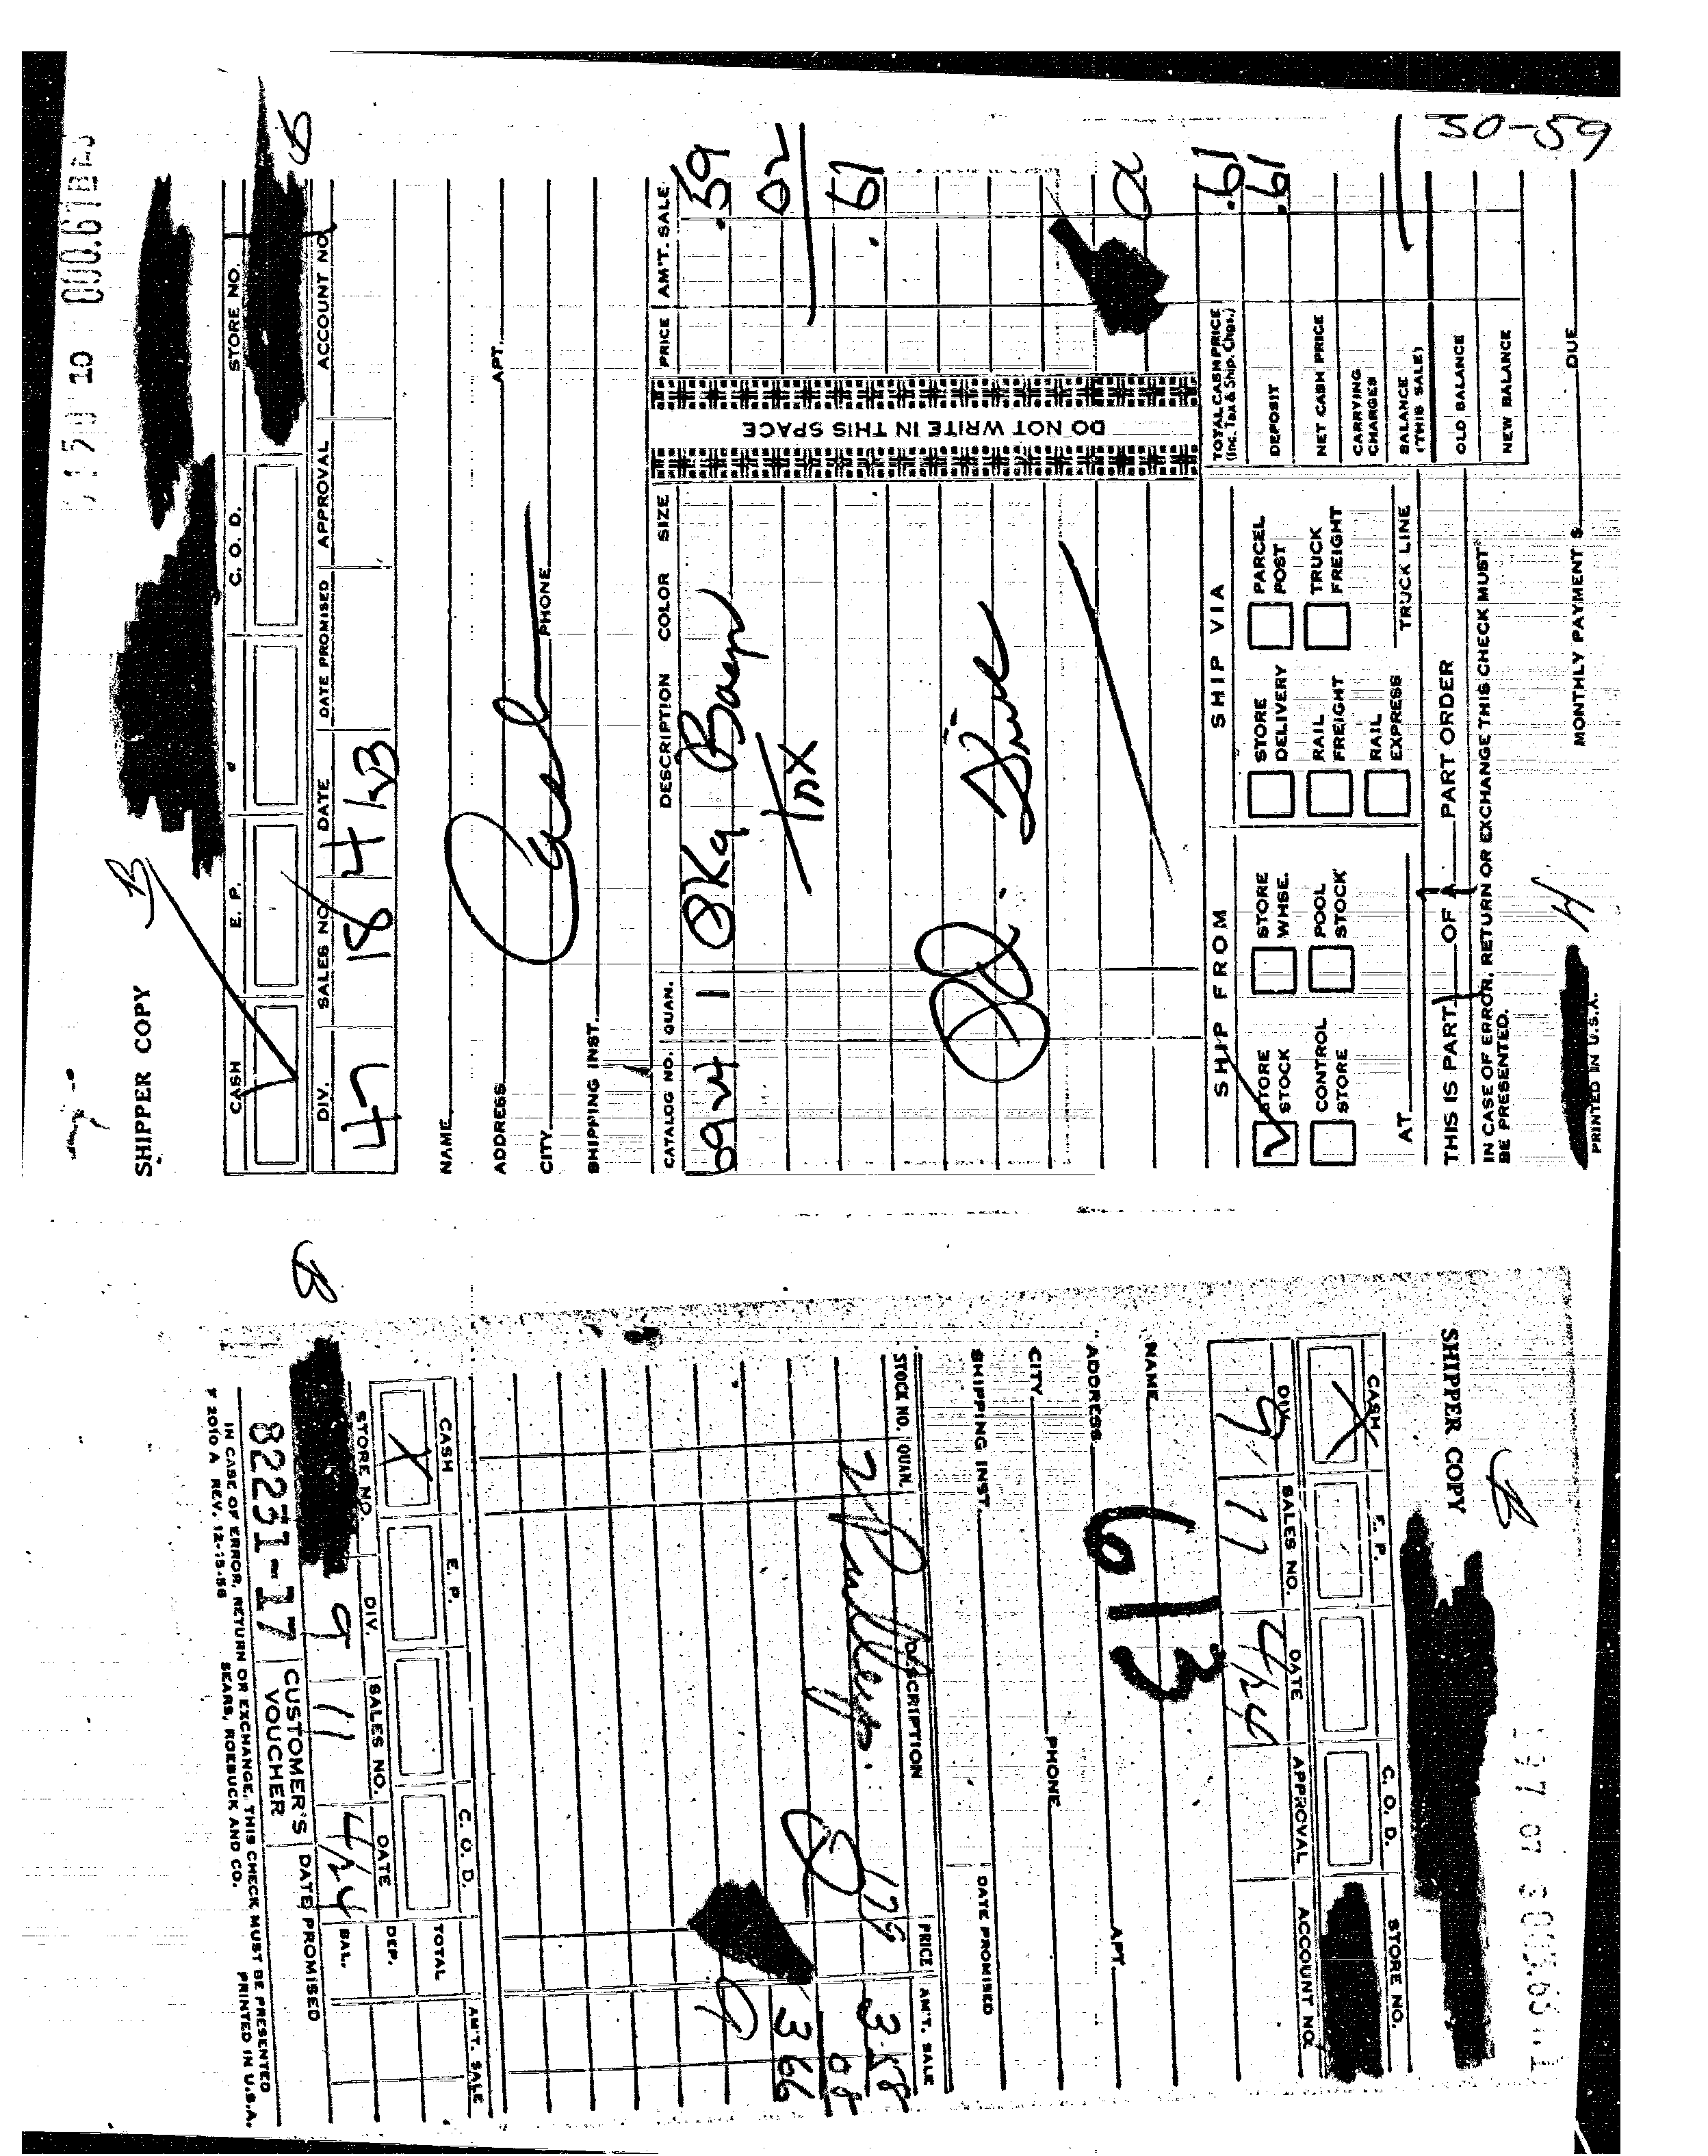 000.61
SHIPPER COPY
B
CASH E. P. C. O. D. STORE NO.
B
DIV. SALES NO. DATE DATE PROMISED APPROVAL ACCOUNT NO.
47 18
NAME
Cash
ADDRESS APT.
CITY PHONE
SHIPPING INST.
CATALOG NO. QUAN. DESCRIPTION COLOR SIZE PRICE AM'T. SALE
6924 1 8Kg .59
Tax 02
.61
DO NOT WRITE IN THIS SPACE
SHIP FROM SHIP VIA
STORE STOCK
STORE WHSE.
STORE DELIVERY
PARCEL POST
CONTROL STORE
POOL STOCK
RAIL FREIGHT
TRUCK FREIGHT
RAIL EXPRESS
AT TRUCK LINE
TOTAL CASH PRICE (Inc. Tax & Ship. Chgs.) .61
DEPOSIT .61
NET CASH PRICE
CARRYING CHARGES
BALANCE (THIS SALE)
OLD BALANCE
NEW BALANCE
30-59
THIS IS PART 1 OF A 1 PART ORDER
IN CASE OF ERROR, RETURN OR EXCHANGE THIS CHECK MUST
BE PRESENTED.
MONTHLY PAYMENT $ DUE
PRINTED IN U.S.A.
SHIPPER COPY
B
CASH E. P. C. O. D. STORE NO.
X
DIV. SALES NO. DATE APPROVAL ACCOUNT NO.
9 11 4/24
613
NAME
ADDRESS APT.
CITY PHONE
SHIPPING INST. DATE PROMISED
STOCK NO. QUAN. DESCRIPTION PRICE AM'T. SALE
2 Pulleys 179 3.58
08
3 66
CASH E. P. C. O. D. TOTAL AM'T. SALE
X
STORE NO. DIV. SALES NO. DATE DEP.
9 11 4/24 BAL.
B
8223I-17 CUSTOMER'S VOUCHER DATE PROMISED
IN CASE OF ERROR, RETURN OR EXCHANGE, THIS CHECK MUST BE PRESENTED
F 2010 A REV. 12-15-56 SEARS, ROEBUCK AND CO. PRINTED IN U.S.A.